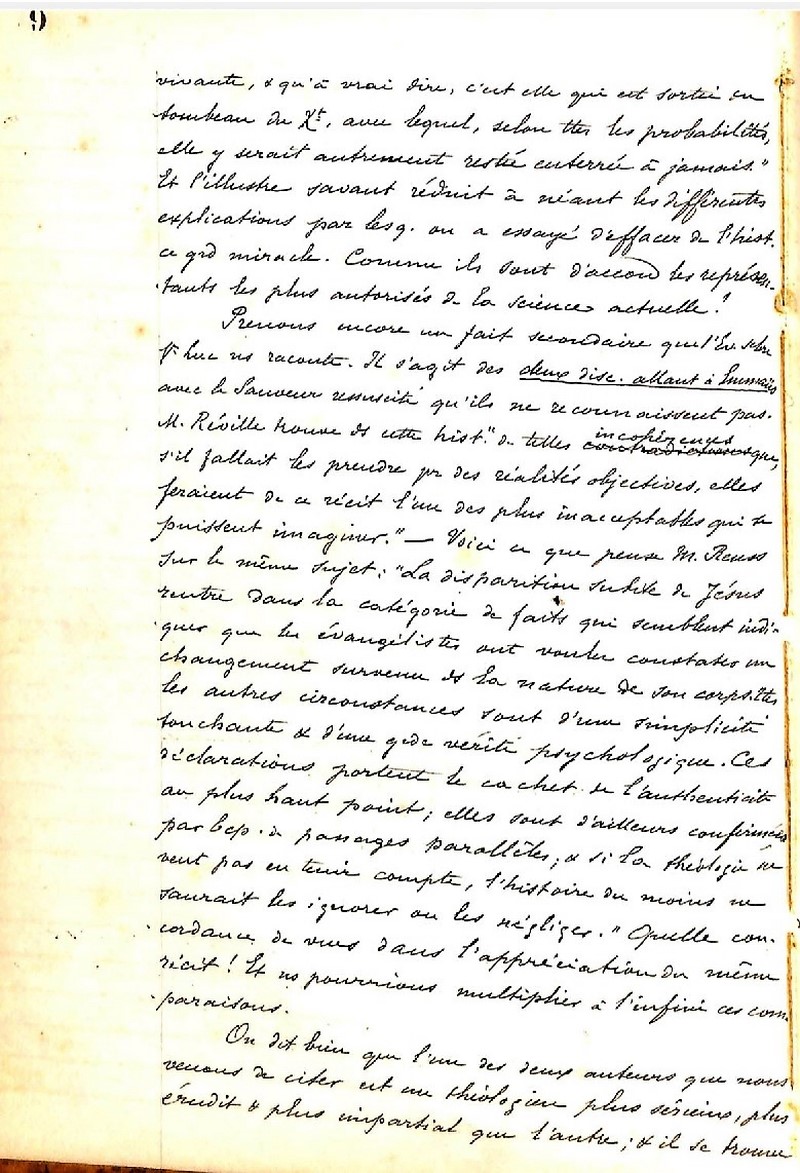 9
vivante, & qu'à vrai dire, c'est elle qui est sortie du
tombeau du Xt, avec lequel, selon ttes les probabilités,
elle y serait autrement restée enterrée à jamais."
Et l'illustre savant réduit à néant les différentes
explications par lesq. on a essayé d'effacer de l'hist.
ce grd miracle. Comme ils sont d'accord les représen-
tants les plus autorisés de la science actuelle!
Prenons encore un fait secondaire que l'Ev. selon
St Luc ns raconte. Il s'agit des deux disc. allant à Emmaüs
avec le Sauveur ressuscité qu'ils ne reconnaissent pas.
M. Réville trouve ds cette hist. "de telles contradictions incohérences que,
s'il fallait les prendre pr des réalités objectives, elles
feraient de ce récit l'un des plus inacceptables qui se
puissent imaginer." — Voici ce que pense M. Reuss
sur le même sujet: "La disparition subite de Jésus
rentre dans la catégorie de faits qui semblent indi-
quer que les évangélistes ont voulu constater un
changement survenu ds la nature de son corps. Ttes
les autres circonstances sont d'une simplicité
touchante & d'une grde vérité psychologique. Ces
déclarations portent le cachet de l'authenticité
au plus haut point; elles sont d'ailleurs confirmées
par bcp. de passages parallèles; & si la théologie ne
veut pas en tenir compte, l'histoire du moins ne
saurait les ignorer ou les négliger." Quelle con-
cordance de vues dans l'appréciation du même
récit! Et ns pourrions multiplier à l'infini ces com-
paraisons.
On dit bien que l'un des deux auteurs que nous
venons de citer est un théologien plus sérieux, plus
érudit & plus impartial que l'autre; & il se trouve